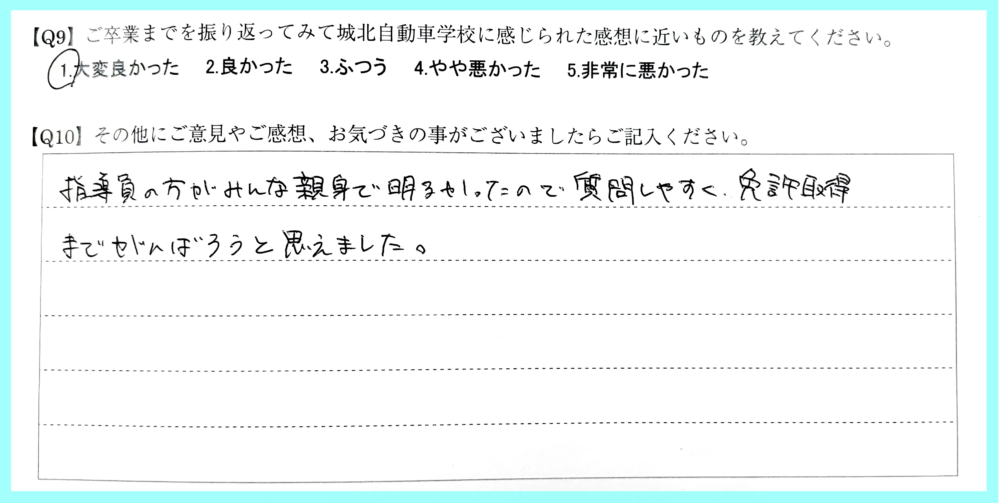 【Q9】ご卒業までを振り返ってみて城北自動車学校に感じられた感想に近いものを教えてください。
1.大変良かった 2.良かった 3.ふつう 4.やや悪かった 5.非常に悪かった
【Q10】その他にご意見やご感想、お気づきの事がございましたらご記入ください。
指導員の方がみんな親身で明るかったので質問しやすく、免許取得
までがんばろうと思えました。